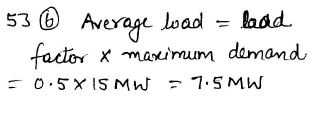 53 (b) Average load = load
factor x maximum demand
= 0.5 X 15 MW = 7.5 MW